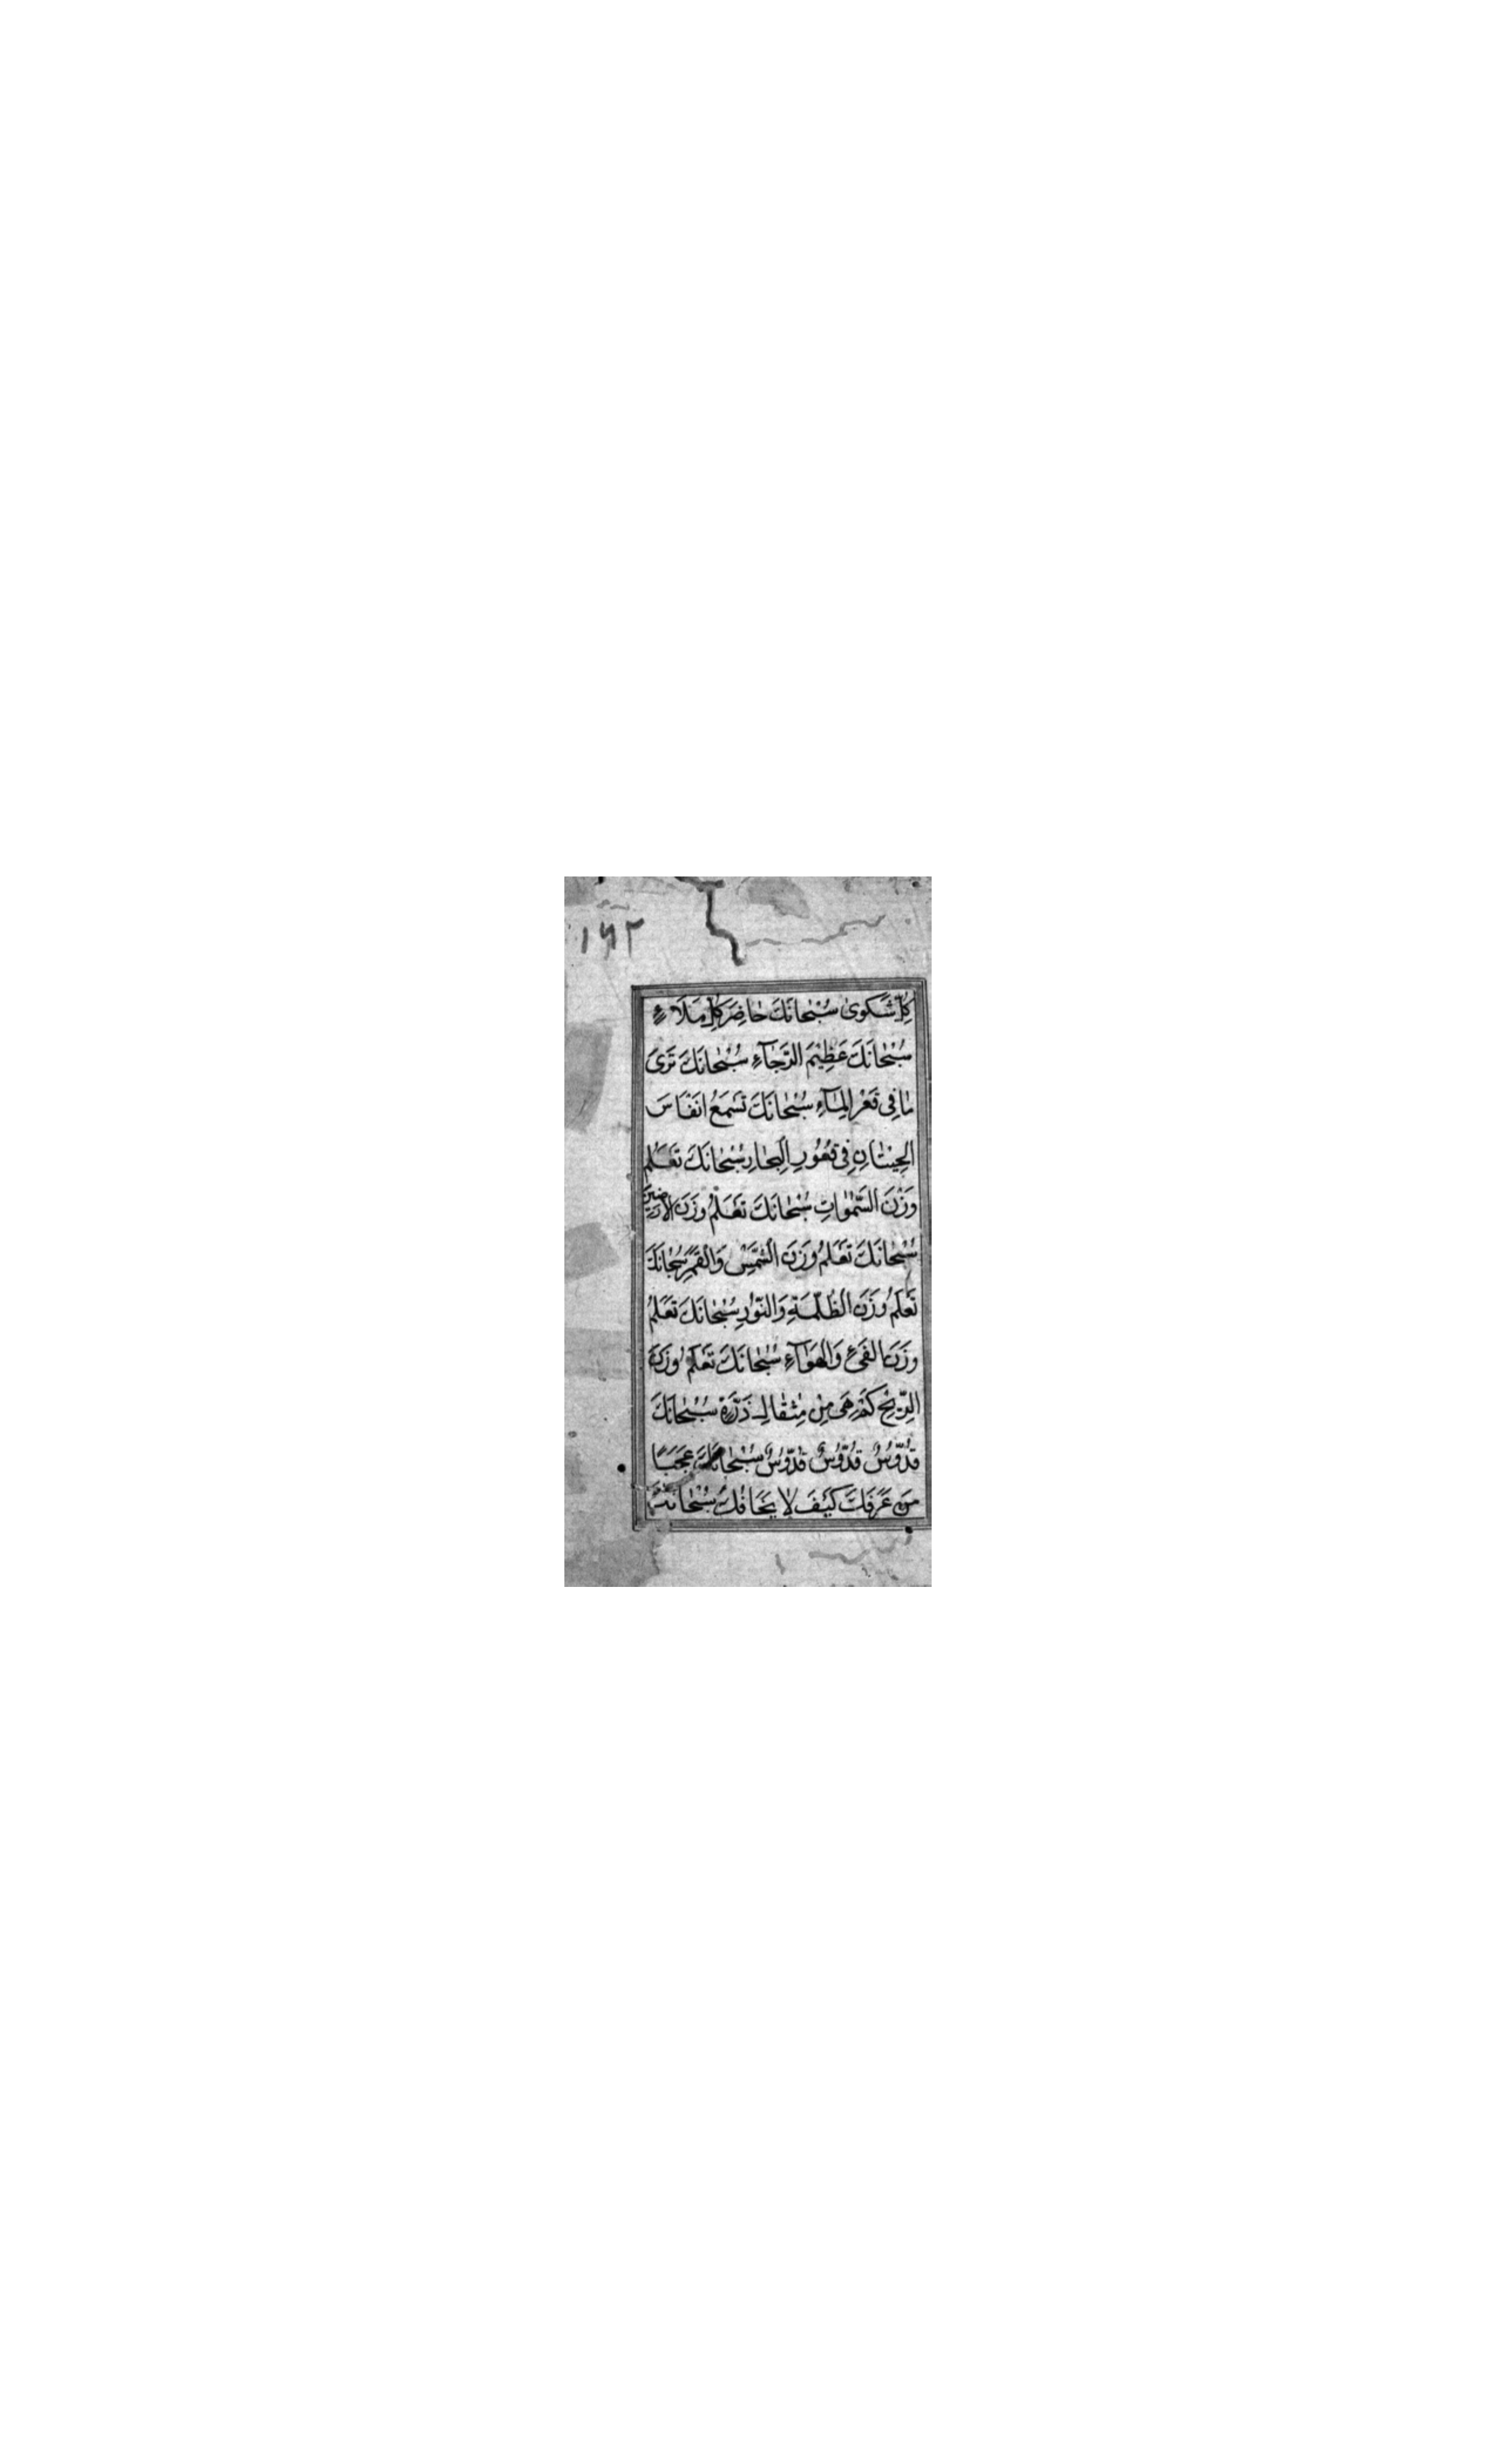 ١٦٢
كُلِّ شَكْوىٰ سُبْحٰانَكَ حٰاضِرَ كُلِّ مَلَاءٍ
سُبْحٰانَكَ عَظِيْمَ الرَّجٰآءِ سُبْحٰانَكَ تَرَىٰ
مٰا فِي قَعْرِ الْمٰآءِ سُبْحٰانَكَ تَسْمَعُ اَنْفٰاسَ
الْحِيْتٰانِ فِي قُعُورِ الْبِحٰارِ سُبْحٰانَكَ تَعْلَمُ
وَزْنَ السَّمٰوٰاتِ سُبْحٰانَكَ تَعْلَمُ وَزْنَ الْاَرَضِيْنَ
سُبْحٰانَكَ تَعْلَمُ وَزْنَ الشَّمْسِ وَالْقَمَرِ سُبْحٰانَكَ
تَعْلَمُ وَزْنَ الظُّلْمَةِ وَالنُّوْرِ سُبْحٰانَكَ تَعْلَمُ
وَزْنَ الْفَيْءِ وَالْهَوٰآءِ سُبْحٰانَكَ تَعْلَمُ وَزْنَ
الرِّيْحِ كَمْ هِيَ مِنْ مِثْقٰالِ ذَرَّةٍ سُبْحٰانَكَ
قُدُّوْسٌ قُدُّوْسٌ قُدُّوْسٌ سُبْحٰانَكَ عَجَبًا
مَنْ عَرَفَكَ كَيْفَ لٰا يَخٰافُكَ سُبْحٰانَكَ